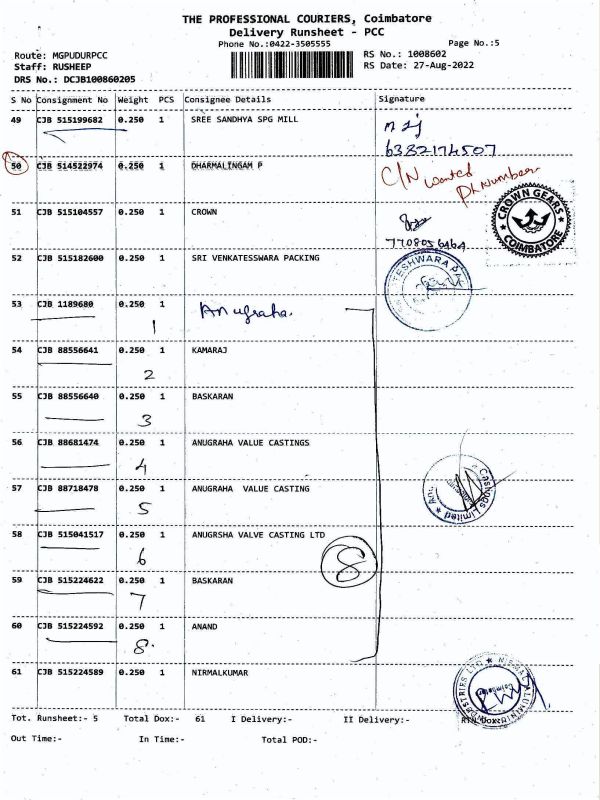 THE PROFESSIONAL COURIERS, Coimbatore
Delivery Runsheet - PCC
Phone No.:0422-3505555
Page No.:5
Route: MGPUDURPCC
RS No.: 1008602
Staff: RUSHEEP
RS Date: 27-Aug-2022
DRS No.: DCJB100860205
S No Consignment No Weight PCS Consignee Details Signature
49 CJB 515199682 0.250 1 SREE SANDHYA SPG MILL
6382174507
50 CJB 514522974 0.250 1 DHARMALINGAM P
C/N wanted
Ph Number
51 CJB 515104557 0.250 1 CROWN
7708056464
CROWN GEARS
COIMBATORE
52 CJB 515182600 0.250 1 SRI VENKATESSWARA PACKING
53 CJB 1189680 0.250 1 Anugraha.
1
54 CJB 88556641 0.250 1 KAMARAJ
2
55 CJB 88556640 0.250 1 BASKARAN
3
56 CJB 88681474 0.250 1 ANUGRAHA VALUE CASTINGS
4
57 CJB 88718478 0.250 1 ANUGRAHA VALUE CASTING
5
Castings Limited
58 CJB 515041517 0.250 1 ANUGRSHA VALVE CASTING LTD
6
8
59 CJB 515224622 0.250 1 BASKARAN
7
60 CJB 515224592 0.250 1 ANAND
8.
61 CJB 515224589 0.250 1 NIRMALKUMAR
Tot. Runsheet:- 5 Total Dox:- 61 I Delivery:- II Delivery:-
Out Time:- In Time:- Total POD:-